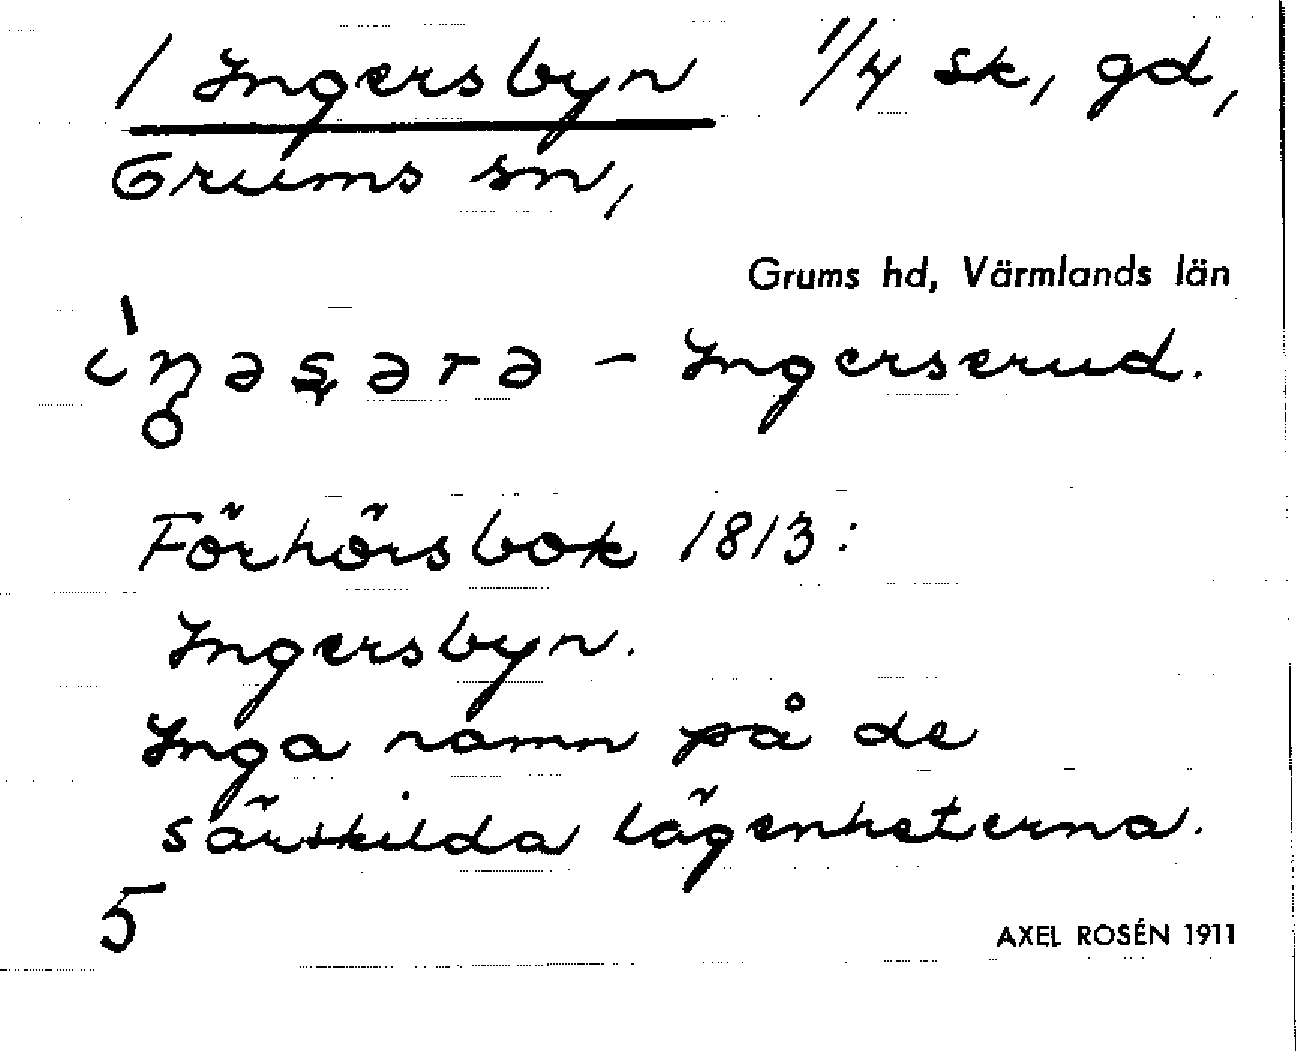 1 Ingersbyn 1/4 sk, gd,
Grums sn,
Grums hd, Värmlands län
– Ingerserud.
Förhörsbok 1813:
Ingersbyn.
Inga namn på de
särskilda lägenheterna.
5
AXEL ROSÉN 1911